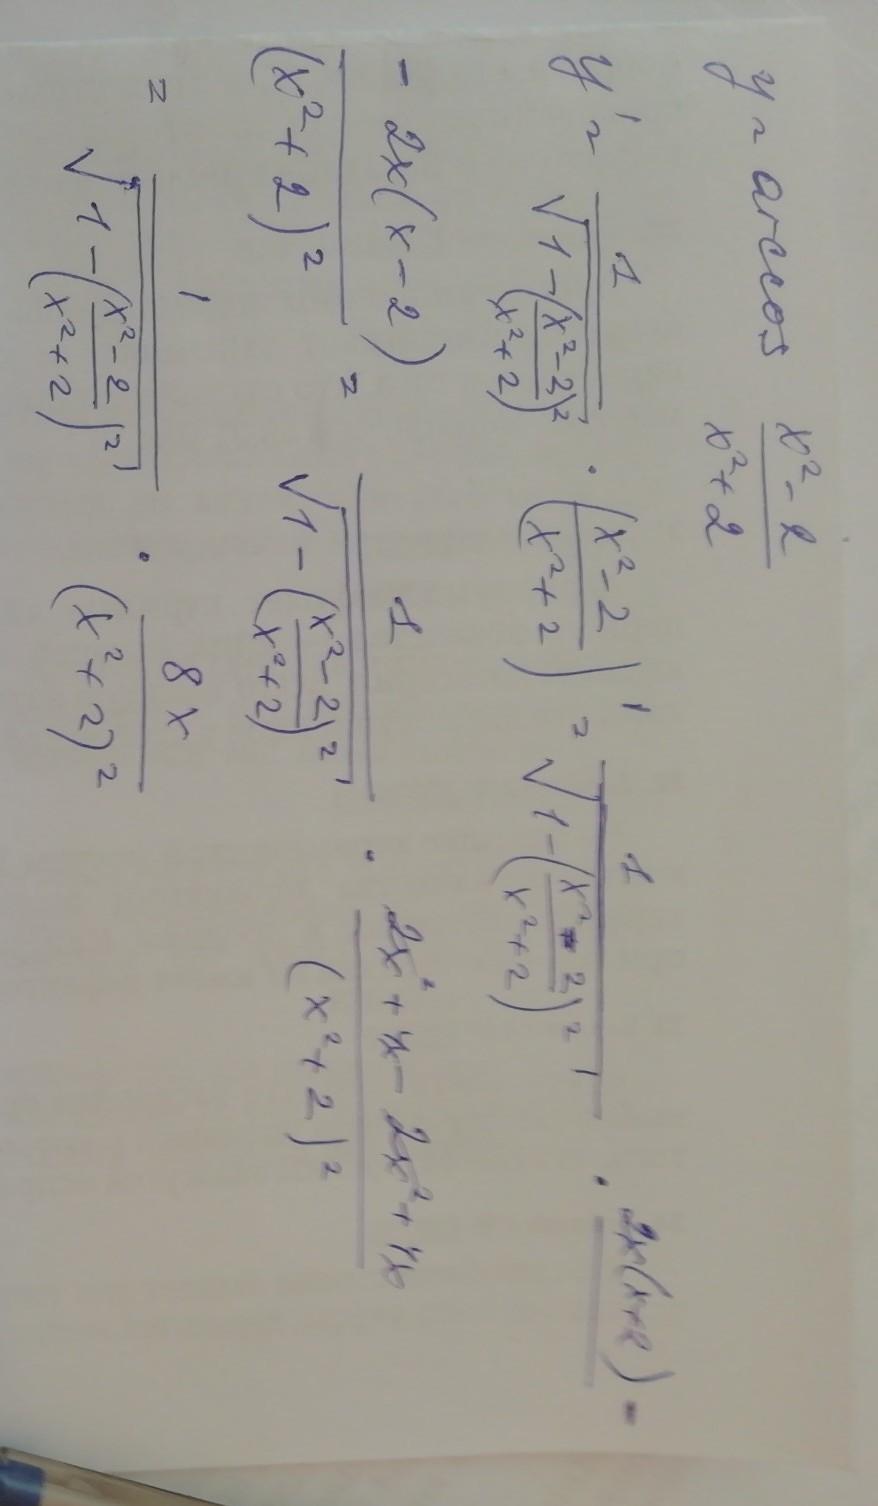 y = arccos (x² - 2)/(x² + 2)
y' = 1/√(1 - ((x² - 2)/(x² + 2))²) · ((x² - 2)/(x² + 2))' = 1/√(1 - ((x² - 2)/(x² + 2))²) · 2x(x+2) -
- 2x(x - 2)/(x² + 2)² = 1/√(1 - ((x² - 2)/(x² + 2))²) · (2x² + 4x - 2x² + 4x)/(x² + 2)²
= 1/√(1 - ((x² - 2)/(x² + 2))²) · 8x/(x² + 2)²